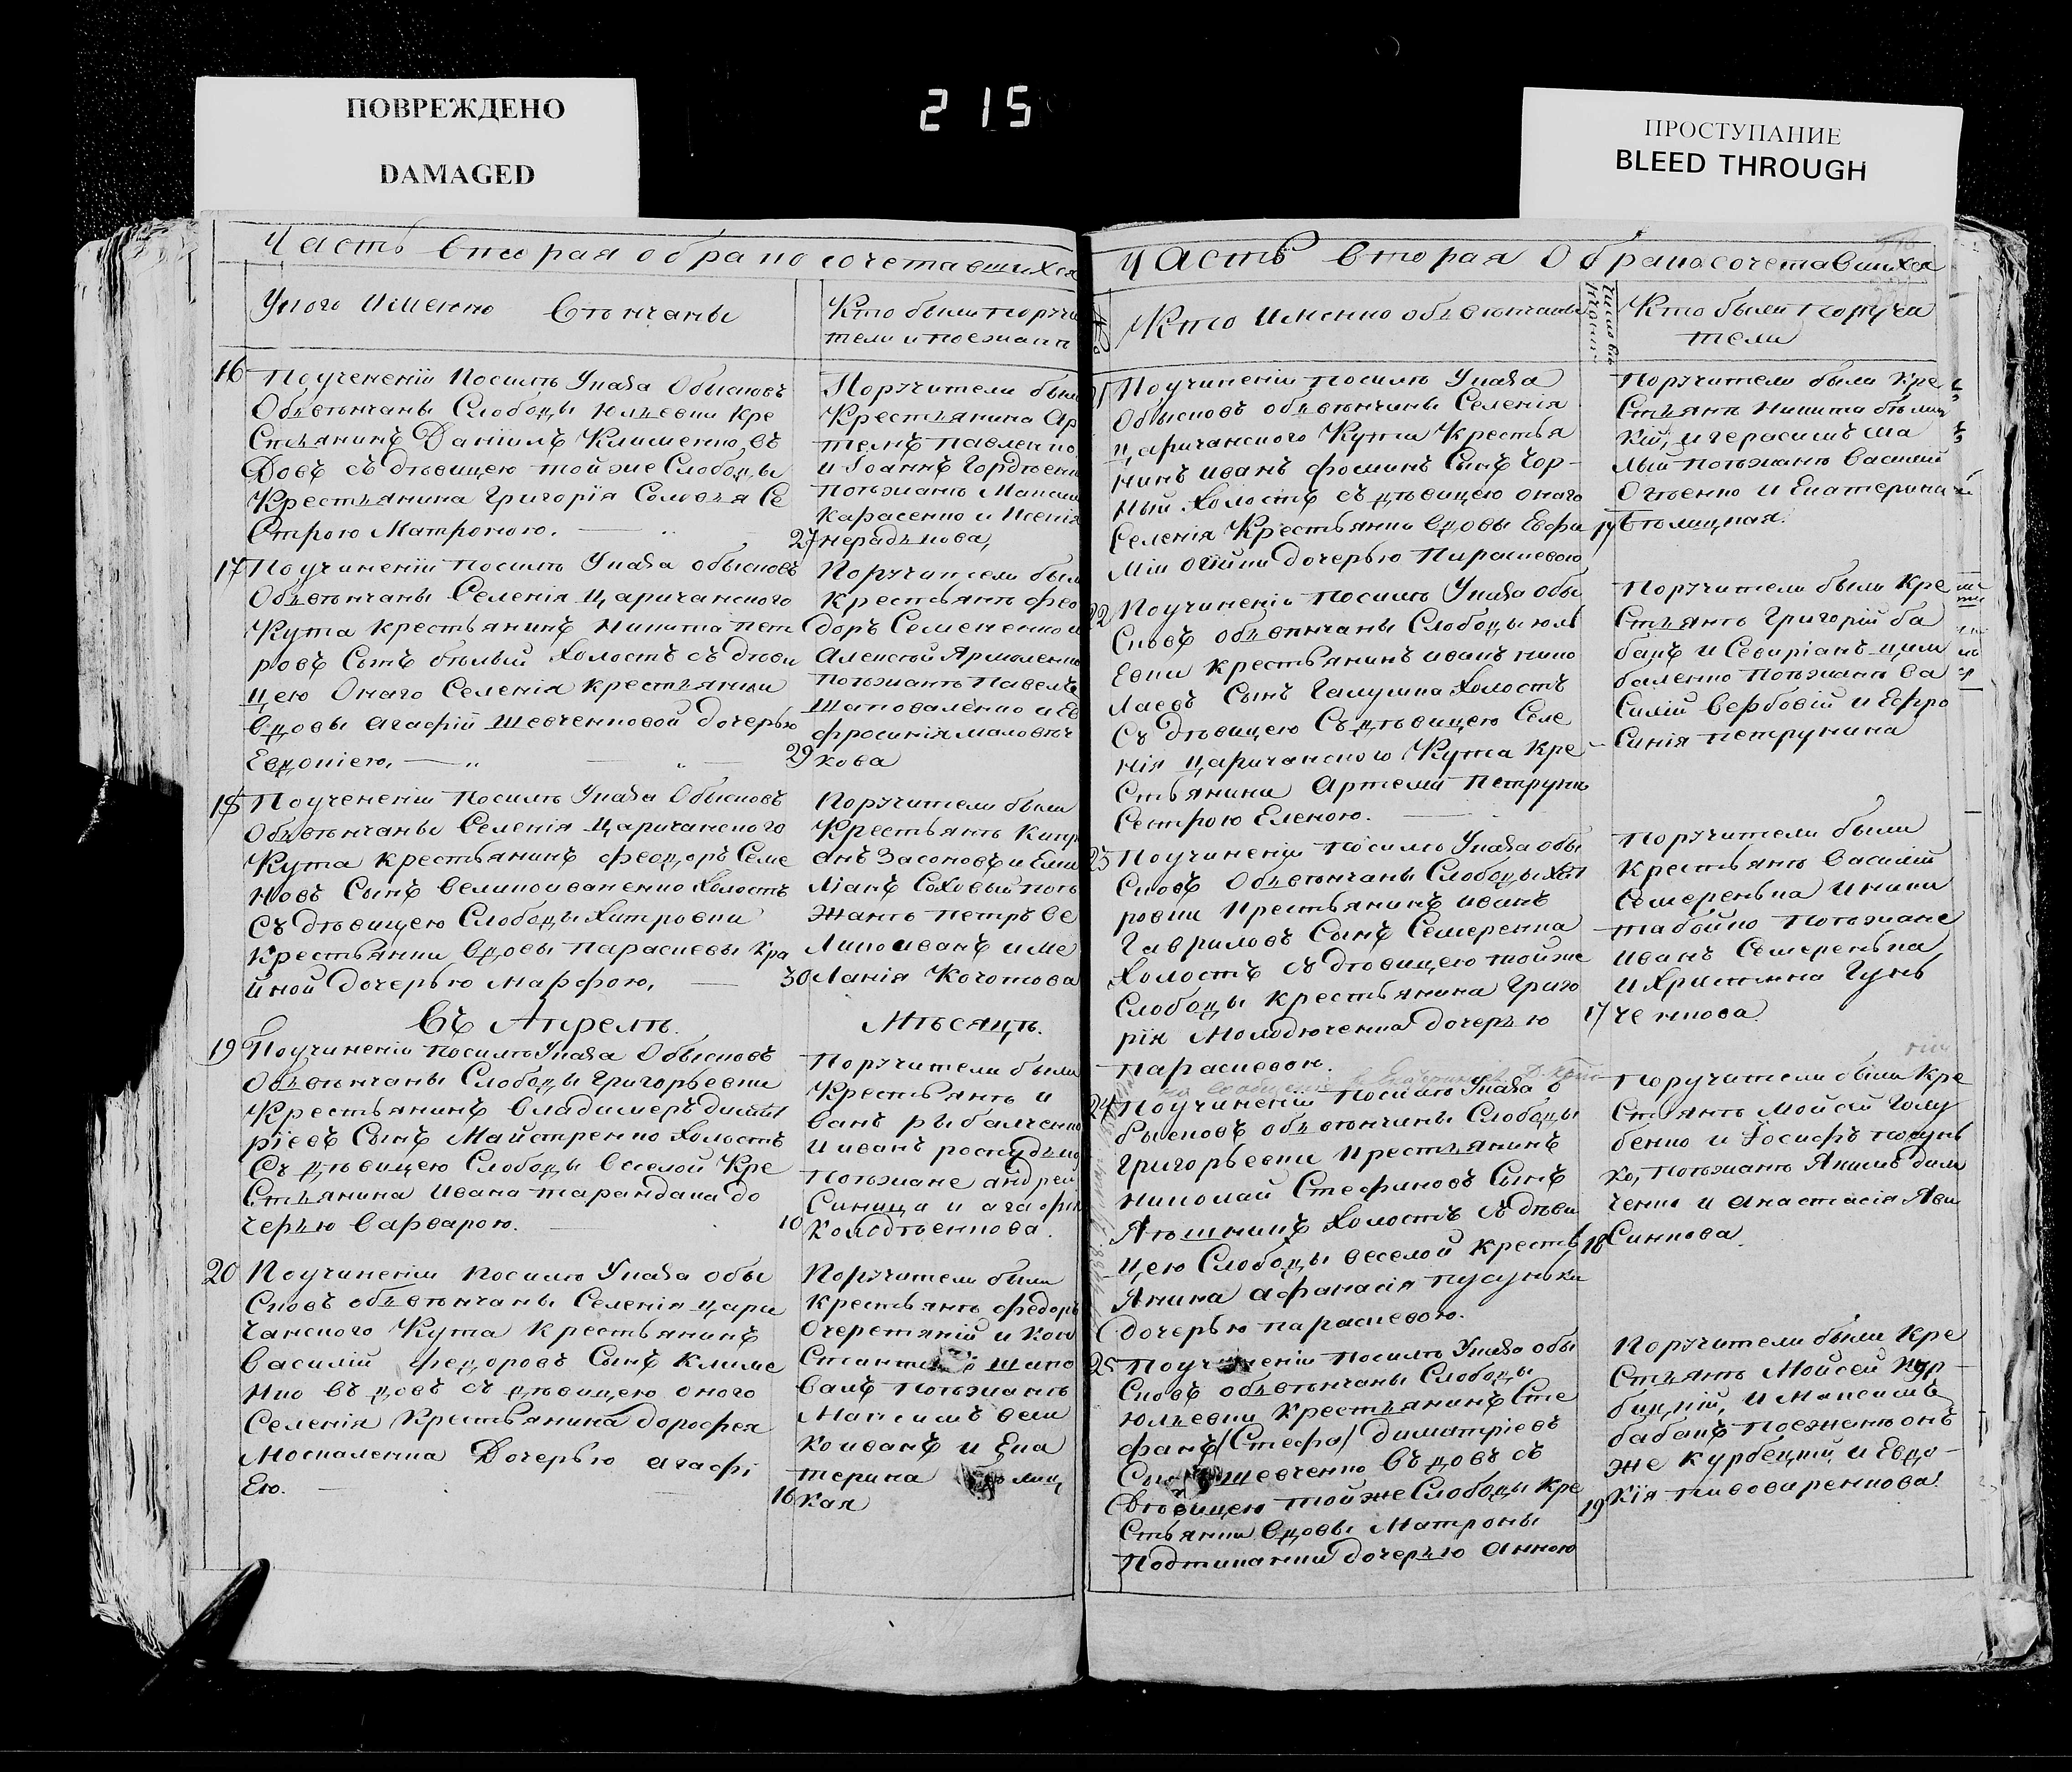 ПОВРЕЖДЕНО
DAMAGED
215
ПРОСТУПАНИЕ
BLEED THROUGH
Часть вторая о бракосочетавшихся
Кого именно Вѣнчаны
Кто были поручи
тели и поезжан
16 По учененіи посилѣ Указа Обысковъ
Обвѣнчаны Слободы Юльевки Кре
стьянинъ Даніилъ Клименко, въ
довъ съ дѣвицею тойже Слободы
Крестьянина Григорія Соловья Се
строю Матроною.
27
Поручители были
Крестьянина Ар
темъ Павленко
и Іоаннъ Гордѣенк
потьзжанѣ Максим
Карасенко и Ксенія
нерадькова,
17 По учиненіи посилѣ Указа обысковъ
Обвѣнчаны Селенія Царичанского
Кута крестьянинъ Никита пет
ровъ Сынъ бѣлый холостъ съ дѣви
цею Онаго Селенія крестьянки
вдовы агафіи Шевченковой дочерью
Евдокіею.
29
Поручители были
Крестьянѣ Фео
доръ Семененко и
Алексѣй Ярмоленко
потьзжанѣ Павелъ
Шаповаленко и Ев
фросинія маловѣч
кова
18 По учененіи посилѣ Указа Обысковъ
Обвѣнчаны Селенія Царичанского
Кута крестьянинъ феодоръ Семе
новъ Сынъ великоиваненко холостъ
съ дѣвицею Слободы Хитровки
крестьянки вдовы параскевы Кра
йной дочерью Марфою,
30
Поручители были
Крестьянѣ Кипр
анъ Засоновъ и Еми
ліанъ Соховый поть
зжанѣ петръ Ве
ликоиванъ и ме
ланія Кочотова
Въ Апрелѣ. Мѣсяцѣ.
19 По учиненіи посилѣ Указа Обысковъ
Обвѣнчаны Слободы Григорьевки
Крестьянинъ Владимеръ димит
ріевъ Сынъ Майстренко холостъ
съ дѣвицею Слободы веселой Кре
стьянина Ивана тарандака до
черью варварою.
10
Поручители были
Крестьянѣ и
ванъ рыбалченко
и иванъ роскудько
потьзжане андрей
Синица и агафія
Колодѣенкова.
20 По учиненіи посилѣ Указа обы
сковъ обвѣнчаны Селенія цари
чанского Кута Крестьянинъ
василій федоровъ Сынъ Климе
нко въдовъ съ дѣвицею оного
Селенія Крестьянина дорофея
Москаленка Дочерью агафі
ею.
16
Поручители были
Крестьянѣ федоръ
Очеретяній и Кон
Шапо
валъ потьзжанѣ
Максимъ вели
коиванъ и Ека
терина
кая
Часть вторая о бракосочетавшихся
№
Кто именно обвѣнчаны
Кто были поручи
тели
По учиненіи посилѣ Указа
Обысковъ обвѣнчаны Селенія
царичанского Кута Крестья
нинъ иванъ фоминъ Сынъ Чор-
ный холостъ съ дѣвицею оного
Селенія Крестьянки вдовы Евфи
міи огійки дочерью Параскевою
17
Поручители были Кре
стьянѣ Никита бѣлиц
кій, и герасимъ ма
лый потьзжанѣ василій
Огѣенко и Екатерина
Бѣлицкая.
22 По учиненіи посилѣ Указа обы
сковъ обвѣнчаны Слободы юль
евки крестьянинъ иванъ нико
лаевъ Сынъ Галушка холостъ
съ дѣвицею Съ дѣвицею Селе
нія царичанского Кута Кре
стьянина Артемія Петруни
сестрою Еленою.
Поручители были Кре
стьянѣ Григорій ба
бакъ и Севиріанъ цим
баленко потьзжанѣ ва
силій Вербовій и Ефро
синія петрунина
23 По учиненіи посилѣ Указа обы
сковъ Обвѣнчаны Слободы Хит
ровки Крестьянинъ иванъ
Гавриловъ Сынъ Семеренка
холостъ съ дѣвицею тойже
Слободы крестьянина Григо
рія Молодюченка дочерью
параскевою.
17
Поручители были
Крестьянѣ Василій
Семеренька
потьзжане
иванъ Семеренька
и Христина Гунь
ченкова.
24 По учиненіи посилѣ Указа о
бысковъ обвѣнчаны Слободы
Григорьевки Крестьянинъ
николай Стефановъ Сынъ
холостъ съ дѣви
цею Слободы веселой Кресть
янина афанасія
дочерью параскевою.
18
Поручители были Кре
стьянѣ Мойсей Голу
бенко и Іосифъ
ко, потьзжанѣ Якимъ
ченко и анастасія Яки
Синкова.
25 По учиненіи посилѣ Указа обы
сковъ обвѣнчаны Слободы
юльевки Крестьянинъ Сте
фанъ (Стефа) димитріевъ
Шевченко въдовъ съ
дѣвицею тойже Слободы кре
стьянки вдовы Матроны
дочерью Анною
19
Поручители были кре
стьянѣ Мойсей Кур-
бицкій, и Максимъ
бабакъ поезжанѣ онъ
же курбецкій и Евдо-
кія пивоваренкова.